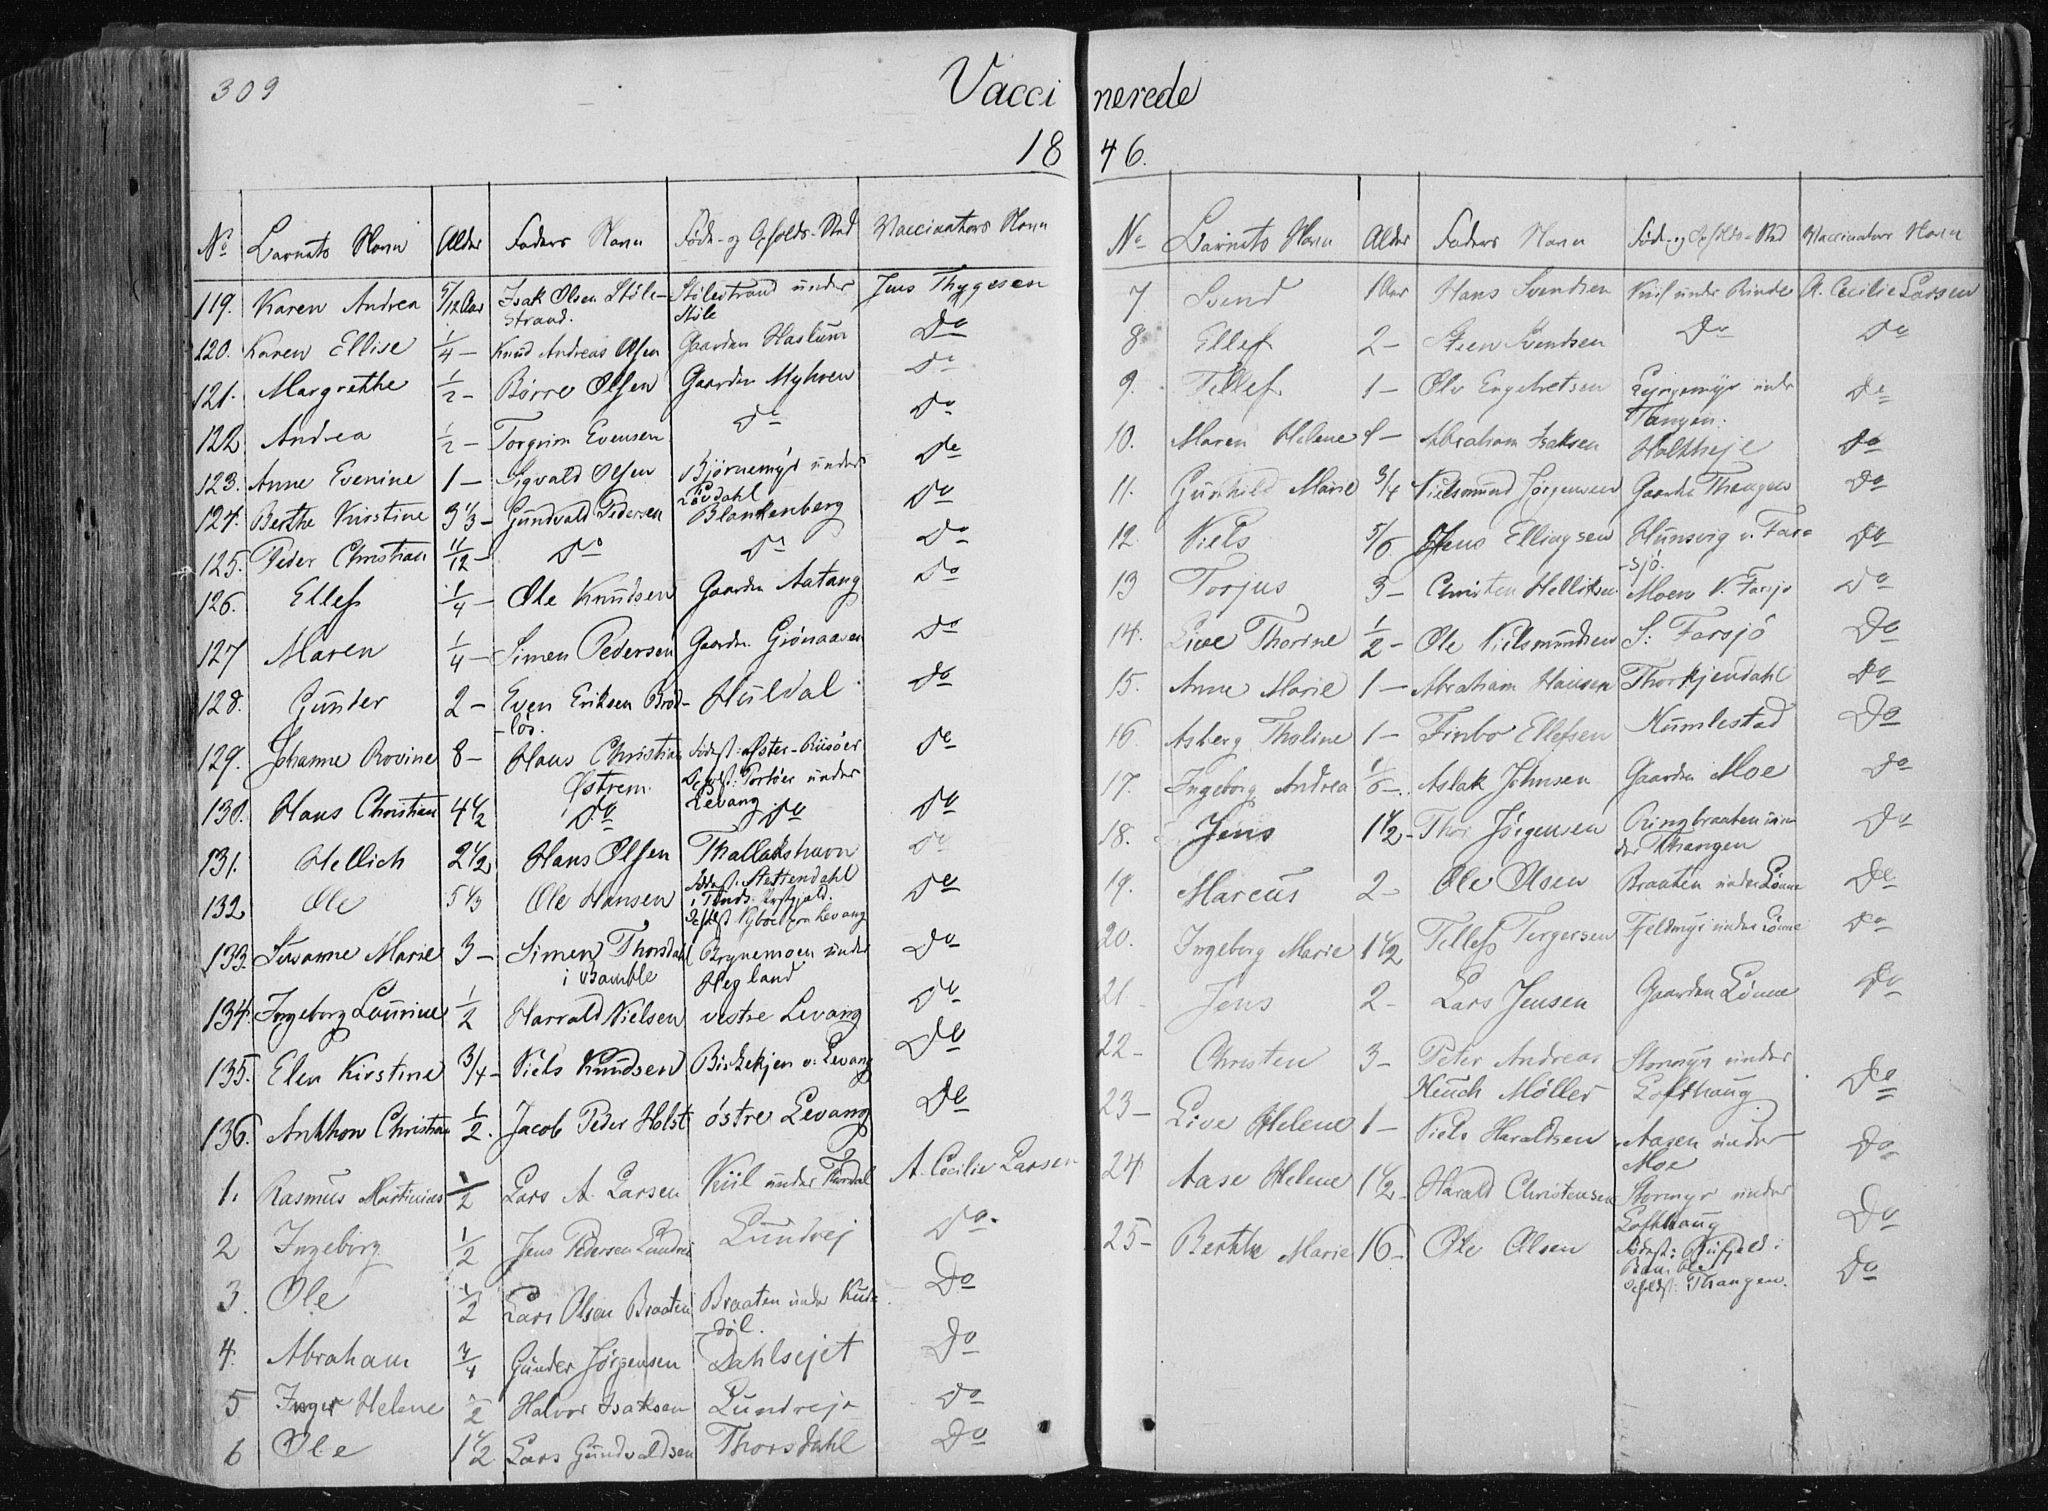 309
Vaccinerede
1846.
No Barnets Navn Alder Faders Navn Føde- og Opholds-Sted Vaccinators Navn
119. Karen Andrea 5/12 Aar Isak Olsen Støle- Stølestrand under Jens Thygesen
strand. Støle
120. Karen Ellise 1/4 – Knud Andreas Olsen Gaarden Haslum Do
121. Margrethe 1/2 – Børre Olsen Gaarden Myhren Do
122. Andrea 1/2 – Torgrim Evensen Do Do
123. Anne Evenine 1 – Sigvald Olsen Bjørnemyr under Do
Løvdahl
124. Berthe Kirstine 3 1/3 – Gundvald Pedersen Blankenberg Do
125. Peder Christian 11/12 – Do Do Do
126. Ellef 1/4 – Ole Knudsen Gaarden Aatang Do
127 Maren 1/4 – Simen Pedersen Gaarden Grønaasen Do
128. Gunder 2 – Even Eriksen Brød- Huldal Do
-løs.
129. Johanne Rovine 8 – Hans Christian Fødest: Øster-Riisøer Do
Østrem Opholdst: Portøer under
Levang
130. Hans Christian 4 1/2 Do Do Do
131. Hellich 2 1/2 Hans Olsen Thallakshavn Do
132. Ole 5 1/3 Ole Hansen Fødest: Stettendahl Do
i Prstgjæld.
Levang
133. Susanne Marie 3 – Simen Thorsdahl Brynemoen under Do
i Bamble Hegland
134. Ingeborg Laurine 1/2 Harrald Nielsen vestre Levang Do
135. Elen Kirstine 3/4 – Niels Knudsen Birkekjen v: Levang Do
136. Anthon Christian 1/2. Jacob Peder Holst østre Levang Do
1. Rasmus Martinius 1/2 Lars A. Larsen Kiil under Thordal A. Cecilie Larsen
2 Ingeborg 1/2 Jens Pedersen Lundrei Lundrej Do.
3. Ole 1/2 Lars Olsen Braaten Braaten under Kur-
døl. Do
4. Abraham 3/4 Gunder Jørgensen Dahlsejet Do
5 Inger Helene 1/2 Halvor Isaksen Lundreje Do
6 Ole 1 1/2 Lars Gundvaldsen Thorsdahl Do
No Barnets Navn Alder Faders Navn Føde- og Opholds-Sted Vaccinators Navn
7. Svend 1 Aar Hans Svendsen Kiil under Rinde A. Cecilie Larsen
8. Ellef 2 – Steen Svendsen Do Do
9. Tellef 1 – Ole Engebretsen under Do
Tangen.
10. Maren Helene – Abraham Isaksen Holtheje Do
11. Gunhild Marie 3/4 Nielsmund Jørgensen Gaarden Thangen Do
12. Niels 5/6 Jens Ellingsen Hunsvig v. Far- Do
-sjø.
13 Torjus 3 – Christen Helliksen Moen N. Farsjø Do
14. Live Thorine 1/2 – Ole Nielsmundsen S: Farsjø Do
15. Anne Marie 1 – Abraham Hansen Thorkjendahl Do
16. Asberg Tholine 1 – Finbo Ellefsen Humlestad Do
17. Ingeborg Andrea 1/6 – Aslak Johnsen Gaarden Moe Do
18. Jens 1 1/2 – Thor Jørgensen Ringbraaten un- Do
der Thangen
19. Marcus 2 – Ole Olsen Braaten under Lønne Do
20. Ingeborg Marie 1 1/2 Tellef Tergersen Fjeldmyr under Lønne Do
21 – Jens 2 – Lars Jensen Gaarden Lønne Do
22 – Christen 3 – Peter Andreas Stormyr under Do
Heuch Møller Lofthaug
23 – Live Helene 1 – Niels Haraldsen Aasen under Do
Moe
24 Aase Helene 1 1/2 – Harald Christensen Stormyr under Do
Lofthaug
25 – Berthe Marie 16 – Ole Olsen Fødest: i Do
Bamble
Opholdst: Thangen.